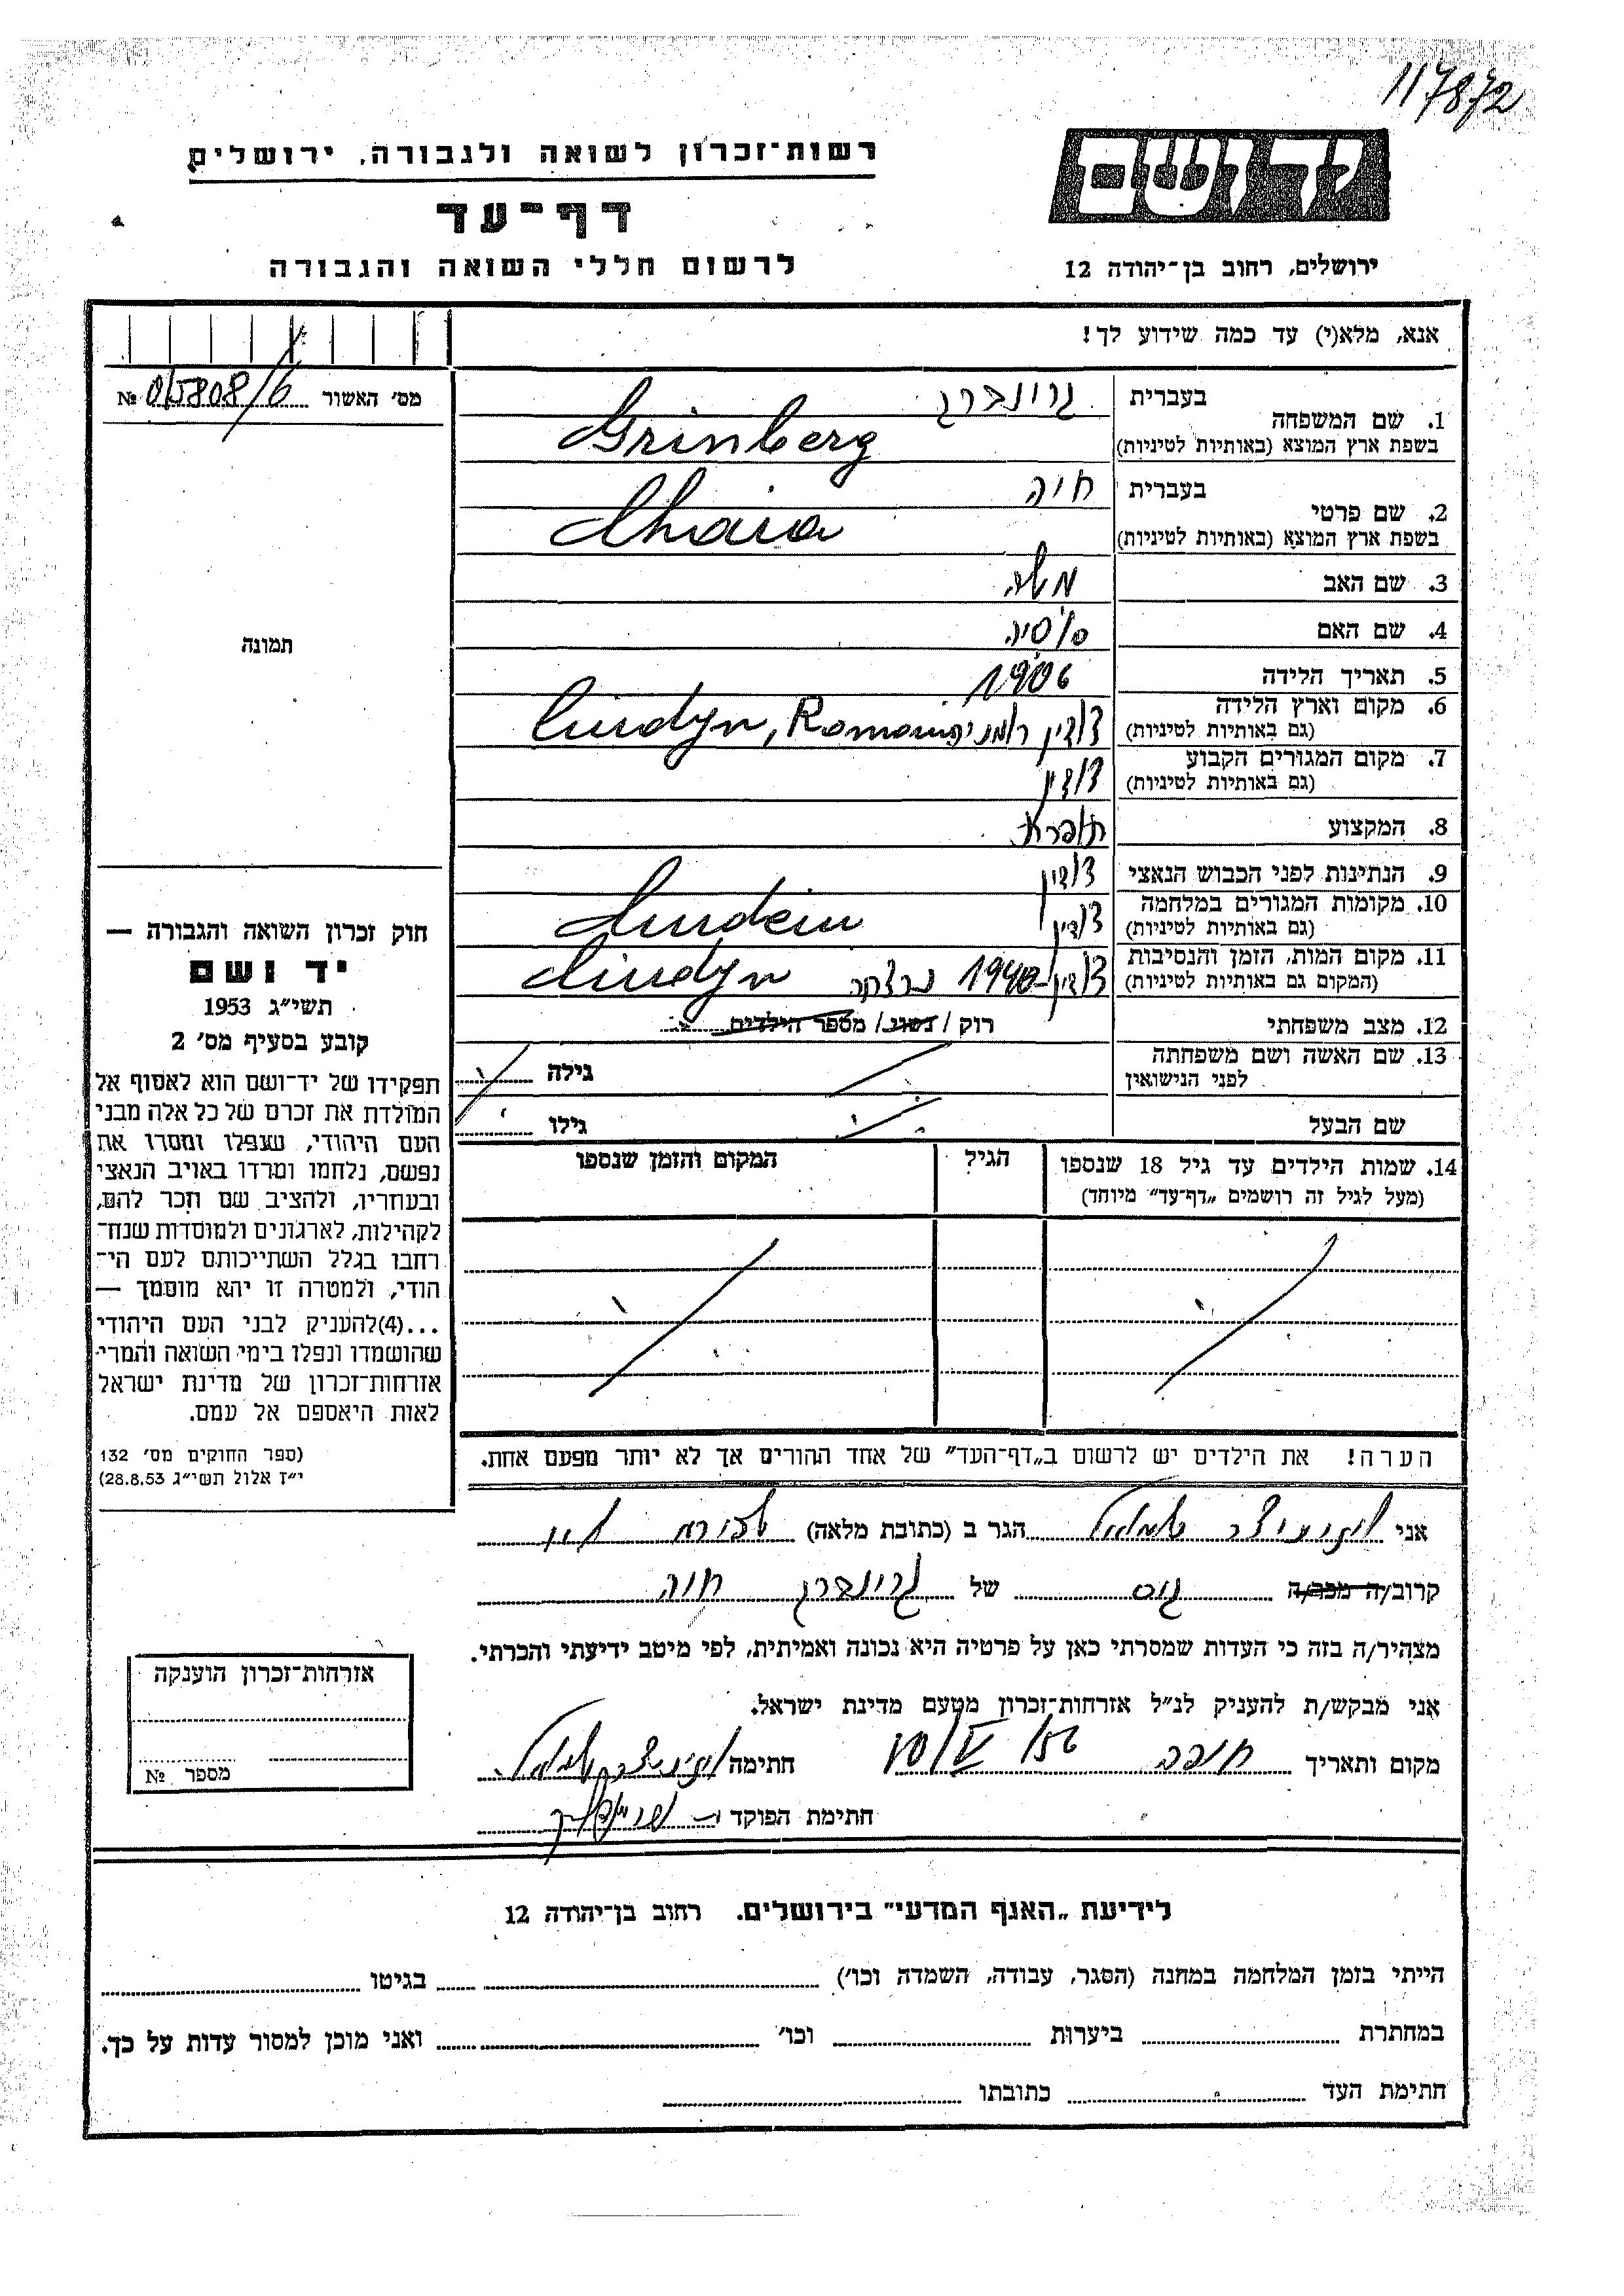 117872
יד ושם
רשות־זכרון לשואה ולגבורה, ירושלים
דף־עד
לרשום חללי השואה והגבורה
ירושלים, רחוב בן־יהודה 12
אנא, מלא(י) עד כמה שידוע לך!
מס׳ האשור № 015808/6
תמונה
1. שם המשפחה בעברית גרינברג
בשפת ארץ המוצא (באותיות לטיניות) Grinberg
2. שם פרטי בעברית חיה
בשפת ארץ המוצא (באותיות לטיניות) Chaia
3. שם האב משה
4. שם האם
5. תאריך הלידה 1906
6. מקום וארץ הלידה
(גם באותיות לטיניות)
7. מקום המגורים הקבוע
(גם באותיות לטיניות)
8. המקצוע תופרת
9. הנתינות לפני הכבוש הנאצי
10. מקומות המגורים במלחמה
(גם באותיות לטיניות)
11. מקום המות, הזמן והנסיבות
(המקום גם באותיות לטיניות) 1940 נרצחה
12. מצב משפחתי רוק / נשוי / מספר הילדים
13. שם האשה ושם משפחתה
לפני הנישואין גילה
שם הבעל גילו
14. שמות הילדים עד גיל 18 שנספו הגיל המקום והזמן שנספו
(מעל לגיל זה רושמים „דף־עד״ מיוחד)
הערה! את הילדים יש לרשום ב„דף־העד״ של אחד ההורים אך לא יותר מפעם אחת.
חוק זכרון השואה והגבורה —
יד ושם
תשי״ג 1953
קובע בסעיף מס׳ 2
תפקידו של יד־ושם הוא לאסוף אל
המולדת את זכרם של כל אלה מבני
העם היהודי, שנפלו ומסרו את
נפשם, נלחמו ומרדו באויב הנאצי
ובעוזריו, ולהציב שם וזכר להם,
לקהילות, לארגונים ולמוסדות שנח־
רחבו בגלל השתייכותם לעם הי־
הודי, ולמטרה זו יהא מוסמך —
...(4)להעניק לבני העם היהודי
שהושמדו ונפלו בימי השואה והמרי
אזרחות־זכרון של מדינת ישראל
לאות היאספם אל עמם.
(ספר החוקים מס׳ 132
י״ז אלול תשי״ג 28.8.53)
אני הגר ב (כתובת מלאה)
קרוב/ה מכר/ה של גרינברג חיה
מצהיר/ה בזה כי העדות שמסרתי כאן על פרטיה היא נכונה ואמיתית, לפי מיטב ידיעתי והכרתי.
אני מבקש/ת להעניק לנ״ל אזרחות־זכרון מטעם מדינת ישראל.
מקום ותאריך חיפה חתימה
חתימת הפוקד
אזרחות־זכרון הוענקה
מספר №
לידיעת „האגף המדעי״ בירושלים. רחוב בן־יהודה 12
הייתי בזמן המלחמה במחנה (הסגר, עבודה, השמדה וכו׳) בגיטו
במחתרת ביערות וכו׳ ואני מוכן למסור עדות על כך.
חתימת העד כתובתו